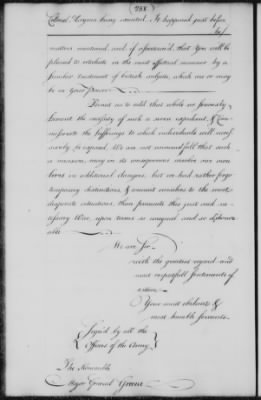 288
matters mentioned and if ascertain'd, that You will be
pleased to retaliate in the most effectual manner by a
similar treatment of british subjects, which are or may
be in Your power
Permit us to add that while we seriously
lament the necessity of such a severe expedient, &
the sufferings to which individuals will
be exposed. We are not unmindful that such
a measure, may in its consequences involve our own
lives in additional dangers, but we had rather forgo
temporary distinctions, & commit ourselves to the most
desperate situations, than prosecute this just and
War, upon terms so unequal and so dishonor
able
We are Sir
with the greatest regard and
most respectfull Sentiments of
esteem
Your most obedient &
most humble Servants
Signed by all the
Officers of the Army
The Honorable
Major General Greene